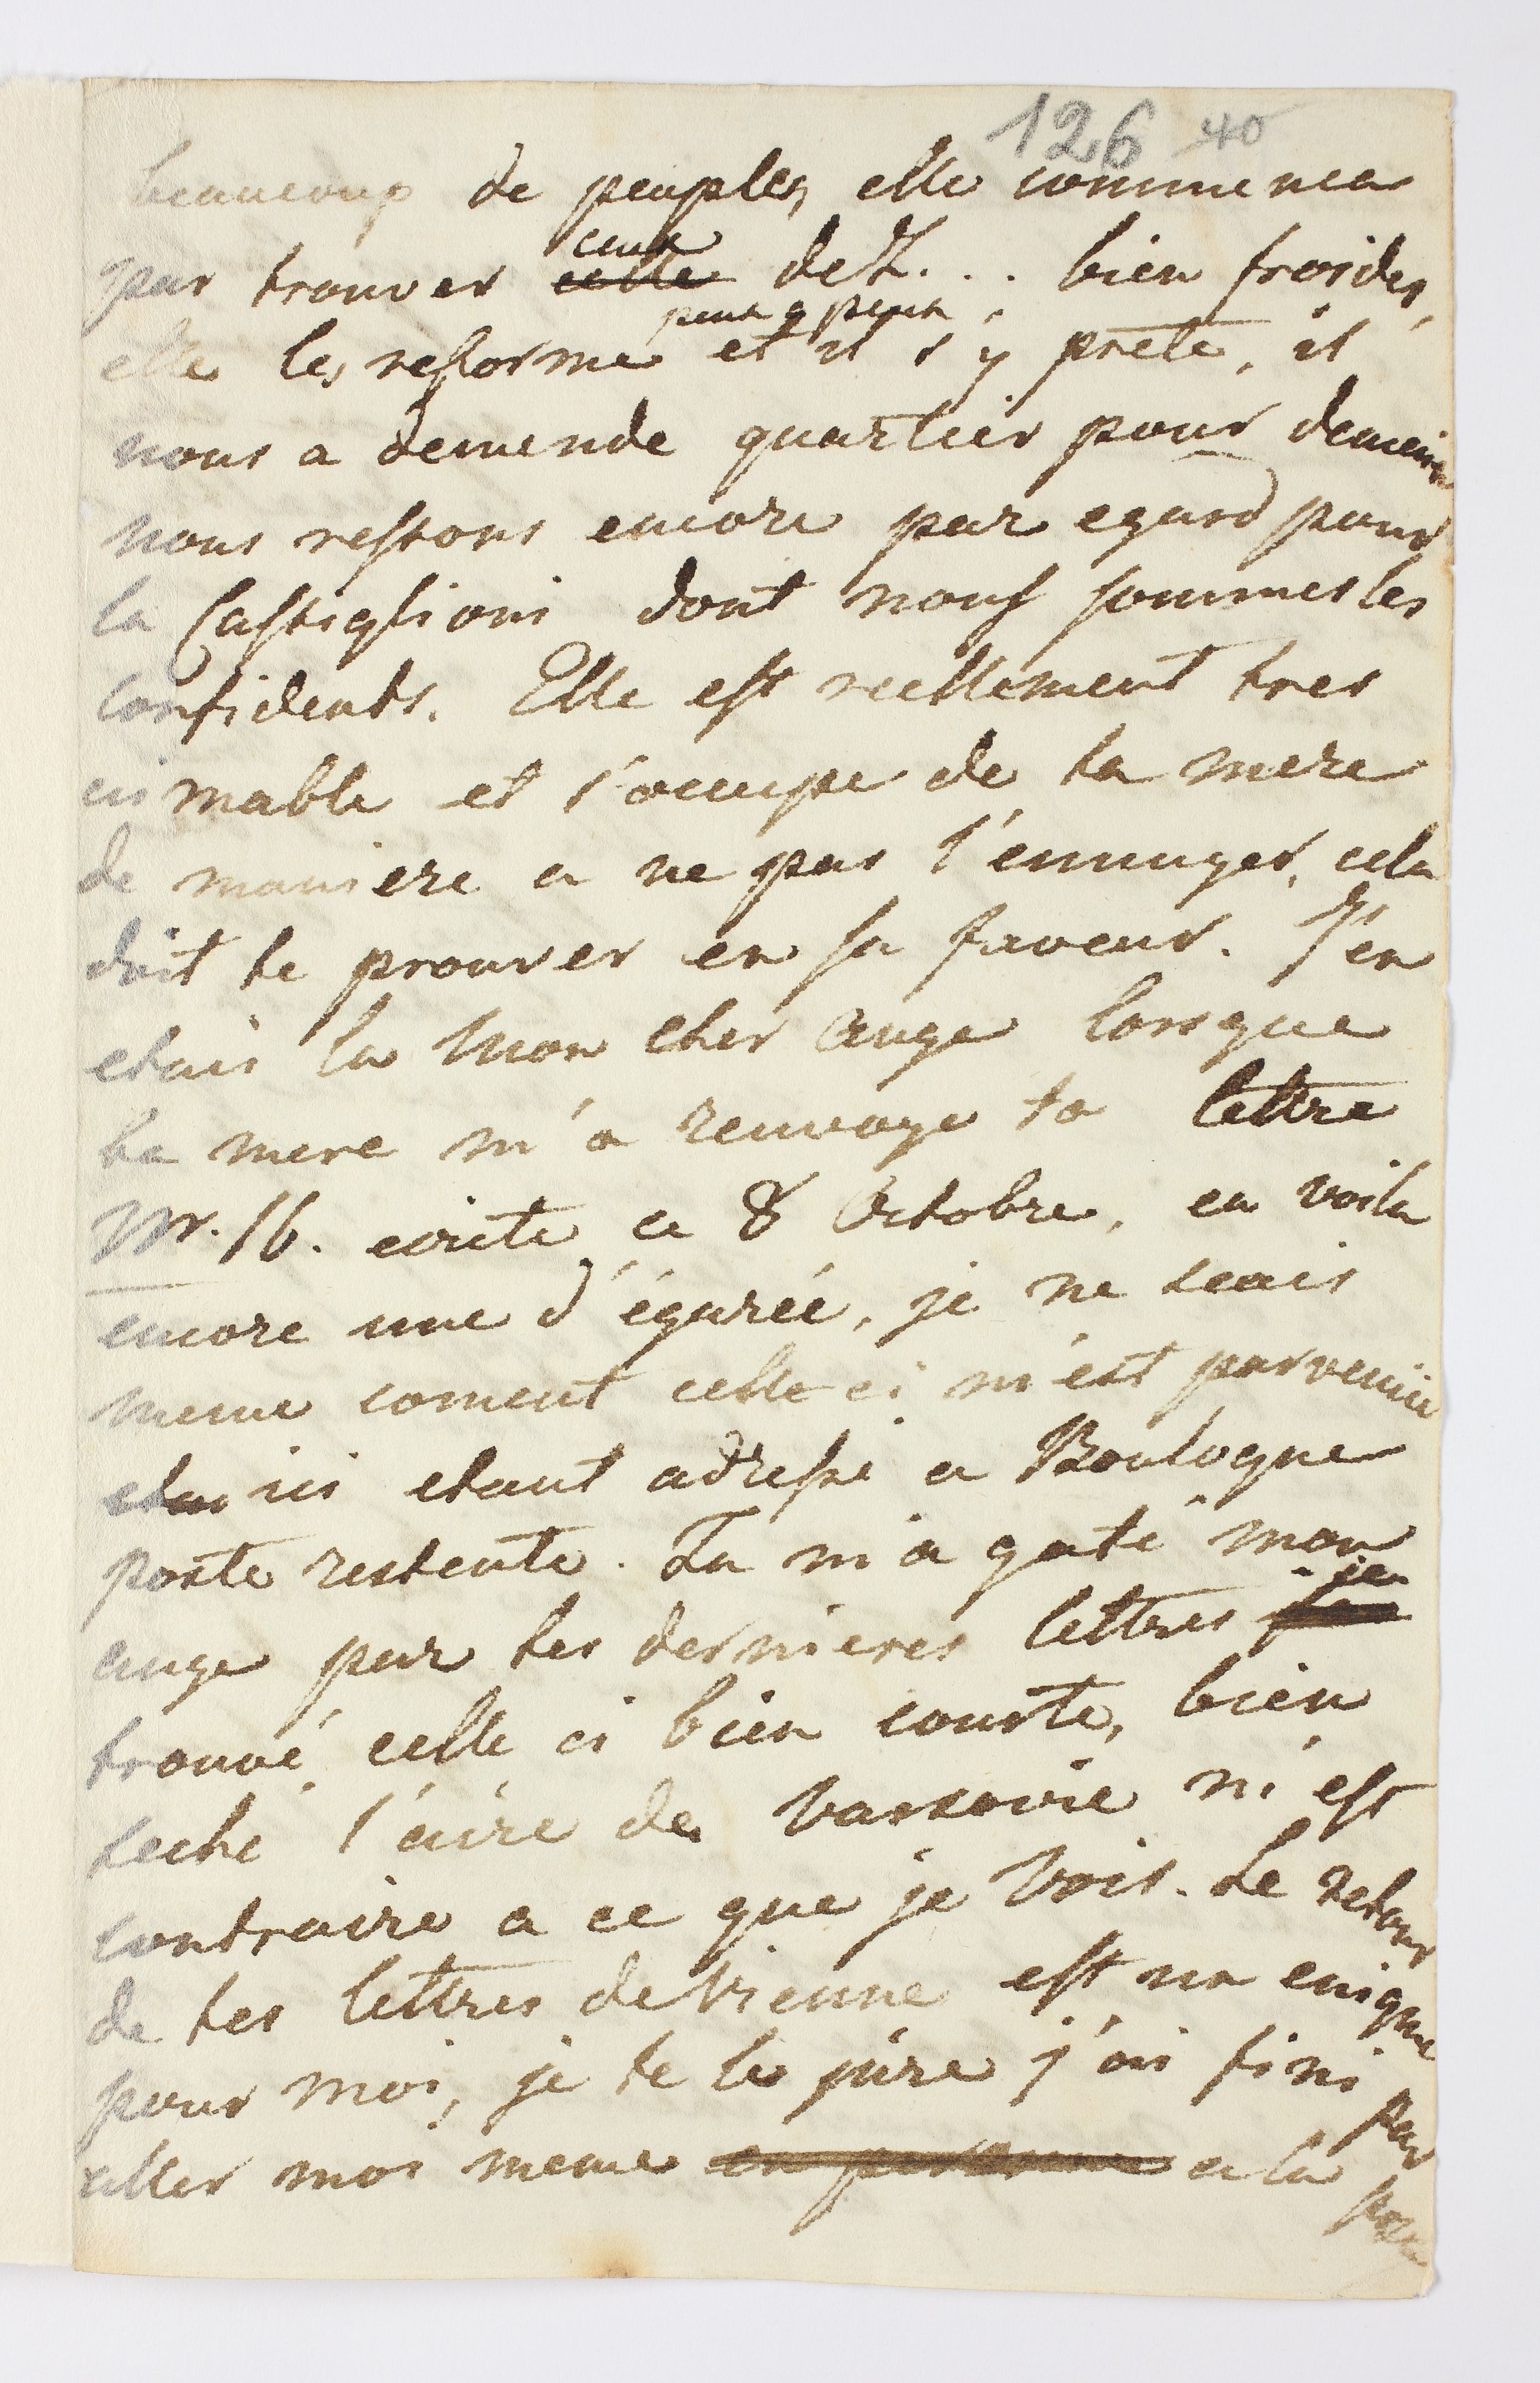 126 40
beaucoup de peuples, elle commenca
ceux
par trouver celle de Z... bien froides,
peux a peux
elle les reforme et il s'y prete, il
nous a demende quartier pour demain
nous restons encore par egard pour
la Castiglioni dont nous sommes les
confidents. Elle est reellement tres
aimable et s'occupe de ta mere
de maniere a ne pas l'ennuyer, cela
doit te prouver en sa faveur. J'en
etais la Mon cher Ange lorsque
ta mere m'a renvoye ta lettre
Nr. 16. ecrite ce 8 Octobre, en voila
encore une d'égarée, je ne scais
meme coment celle ci m'est parvenue
ici etant adresse a Boulogne
poste restente. Tu m'a gaté mon
je
ange par tes dernieres lettres
trouvé celle ci bien courte, bien
seche l'aire de Varsovie m'est
contraire a ce que je vois. Le retour
de tes lettres de Vienne est un enigme
pour moi, je te le jure j'ai fini par
aller moi meme en personne a la
poste